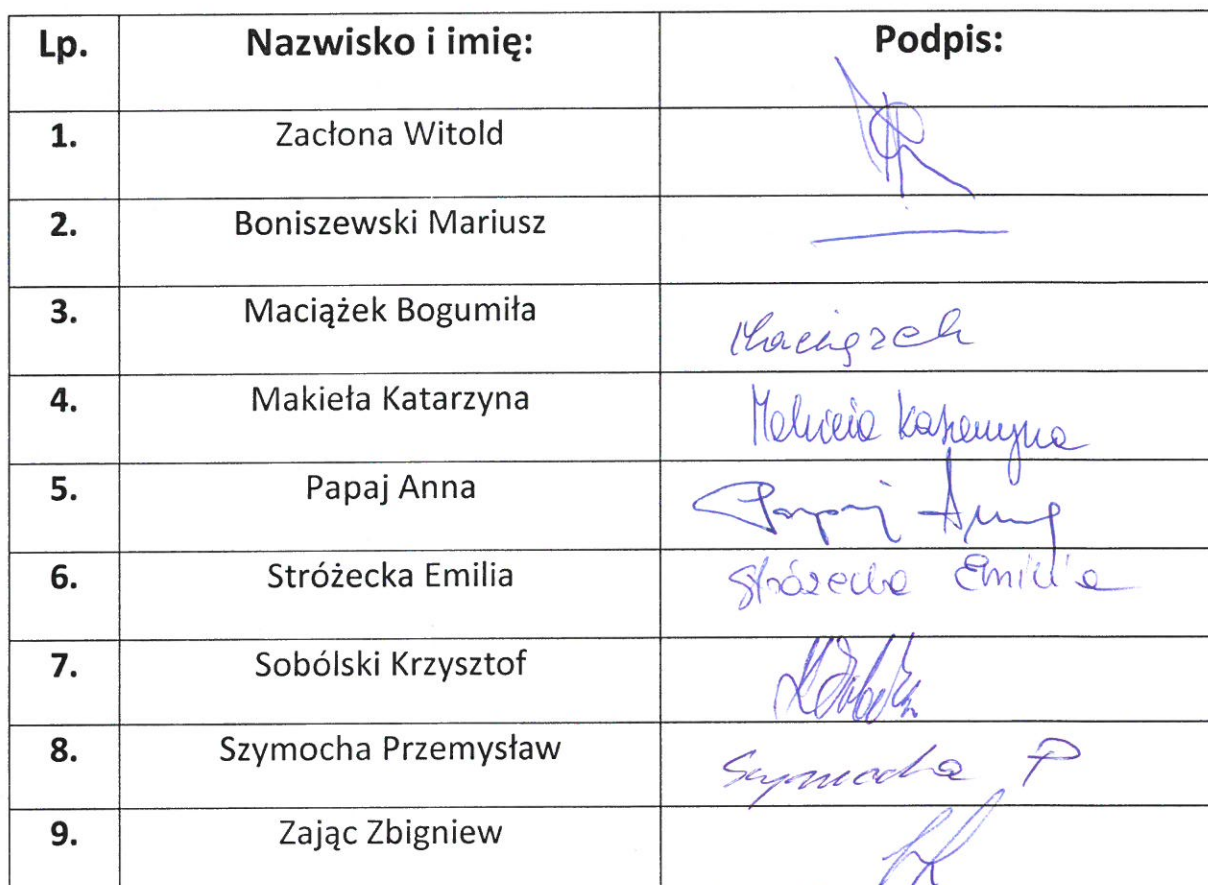 Lp. Nazwisko i imię: Podpis:
1. Zacłona Witold
2. Boniszewski Mariusz
3. Maciążek Bogumiła Maciązek
4. Makieła Katarzyna Makieła Katarzyna
5. Papaj Anna Papaj Anna
6. Stróżecka Emilia Stróżecka Emilia
7. Sobólski Krzysztof
8. Szymocha Przemysław Szymocha P
9. Zając Zbigniew